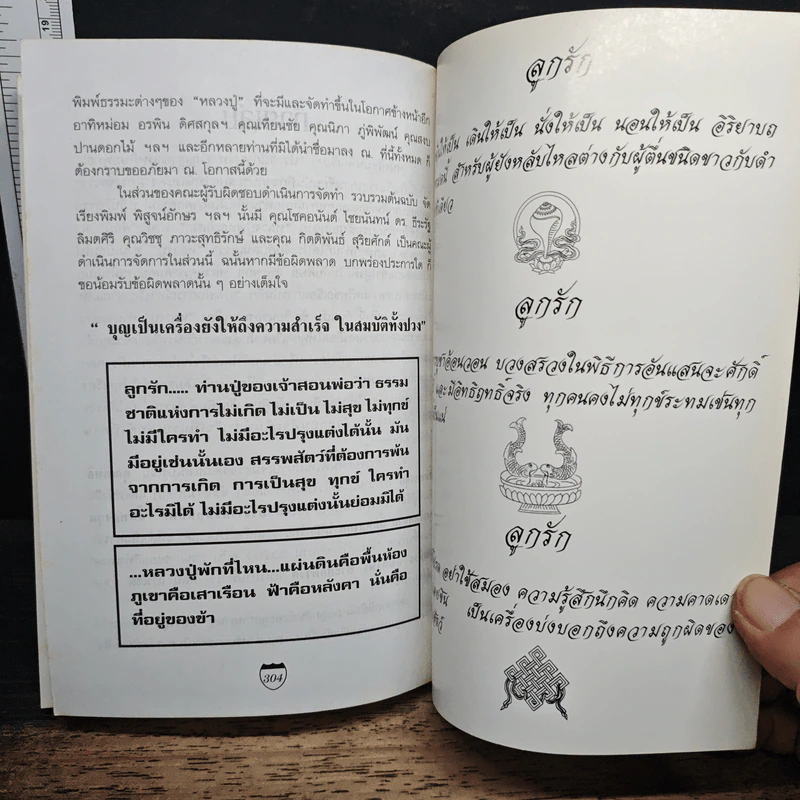 พิมพ์ธรรมะต่างๆของ “หลวงปู่” ที่จะมีและจัดทำขึ้นในโอกาสข้างหน้าอีก
อาทิหม่อม อรพิน ดิศสกุลฯ คุณเทียนชัย คุณนิภา ภู่พิพัฒน์ คุณสงบ
ปานดอกไม้ ฯลฯ และอีกหลายท่านที่มิได้นำชื่อมาลง ณ. ที่นี้ทั้งหมด ก็
ต้องกราบขออภัยมา ณ. โอกาสนี้ด้วย
ในส่วนของคณะผู้รับผิดชอบดำเนินการจัดทำ รวบรวมต้นฉบับ จัด
เรียงพิมพ์ พิสูจน์อักษร ฯลฯ นั้นมี คุณโชคอนันต์ ไชยนันทน์ ดร. ธีระรัฐ
ลิมตศิริ คุณวิชชุ ภาวะสุทธิรักษ์ และคุณ กิตติพันธ์ สุริยศักดิ์ เป็นคณะผู้
ดำเนินการจัดการในส่วนนี้ ฉนั้นหากมีข้อผิดพลาด บกพร่องประการใด ก็
ขอน้อมรับข้อผิดพลาดนั้น ๆ อย่างเต็มใจ
“ บุญเป็นเครื่องยังให้ถึงความสำเร็จ ในสมบัติทั้งปวง”
ลูกรัก..... ท่านปู่ของเจ้าสอนพ่อว่า ธรรม
ชาติแห่งการไม่เกิด ไม่เป็น ไม่สุข ไม่ทุกข์
ไม่มีใครทำ ไม่มีอะไรปรุงแต่งได้นั้น มัน
มีอยู่เช่นนั้นเอง สรรพสัตว์ที่ต้องการพ้น
จากการเกิด การเป็นสุข ทุกข์ ใครทำ
อะไรมิได้ ไม่มีอะไรปรุงแต่งนั้นย่อมมิได้
...หลวงปู่พักที่ไหน...แผ่นดินคือพื้นห้อง
ภูเขาคือเสาเรือน ฟ้าคือหลังคา นั่นคือ
ที่อยู่ของข้า
304
ลูกรัก
ให้เป็น เดินให้เป็น นั่งให้เป็น นอนให้เป็น อิริยาบถ
สำหรับผู้ยังหลับไหลต่างกับผู้ตื่นชนิดขาวกับดำ
ลูกรัก
อ้อนวอน บวงสรวงในพิธีการอันแสนจะศักดิ์
และมีอิทธิฤทธิ์จริง ทุกคนคงไม่ทุกข์ระทมเช่นทุก
ลูกรัก
อย่าใช้สมอง ความรู้สึกนึกคิด ความคาดเดา
เป็นเครื่องบ่งบอกถึงความถูกผิดของ
19